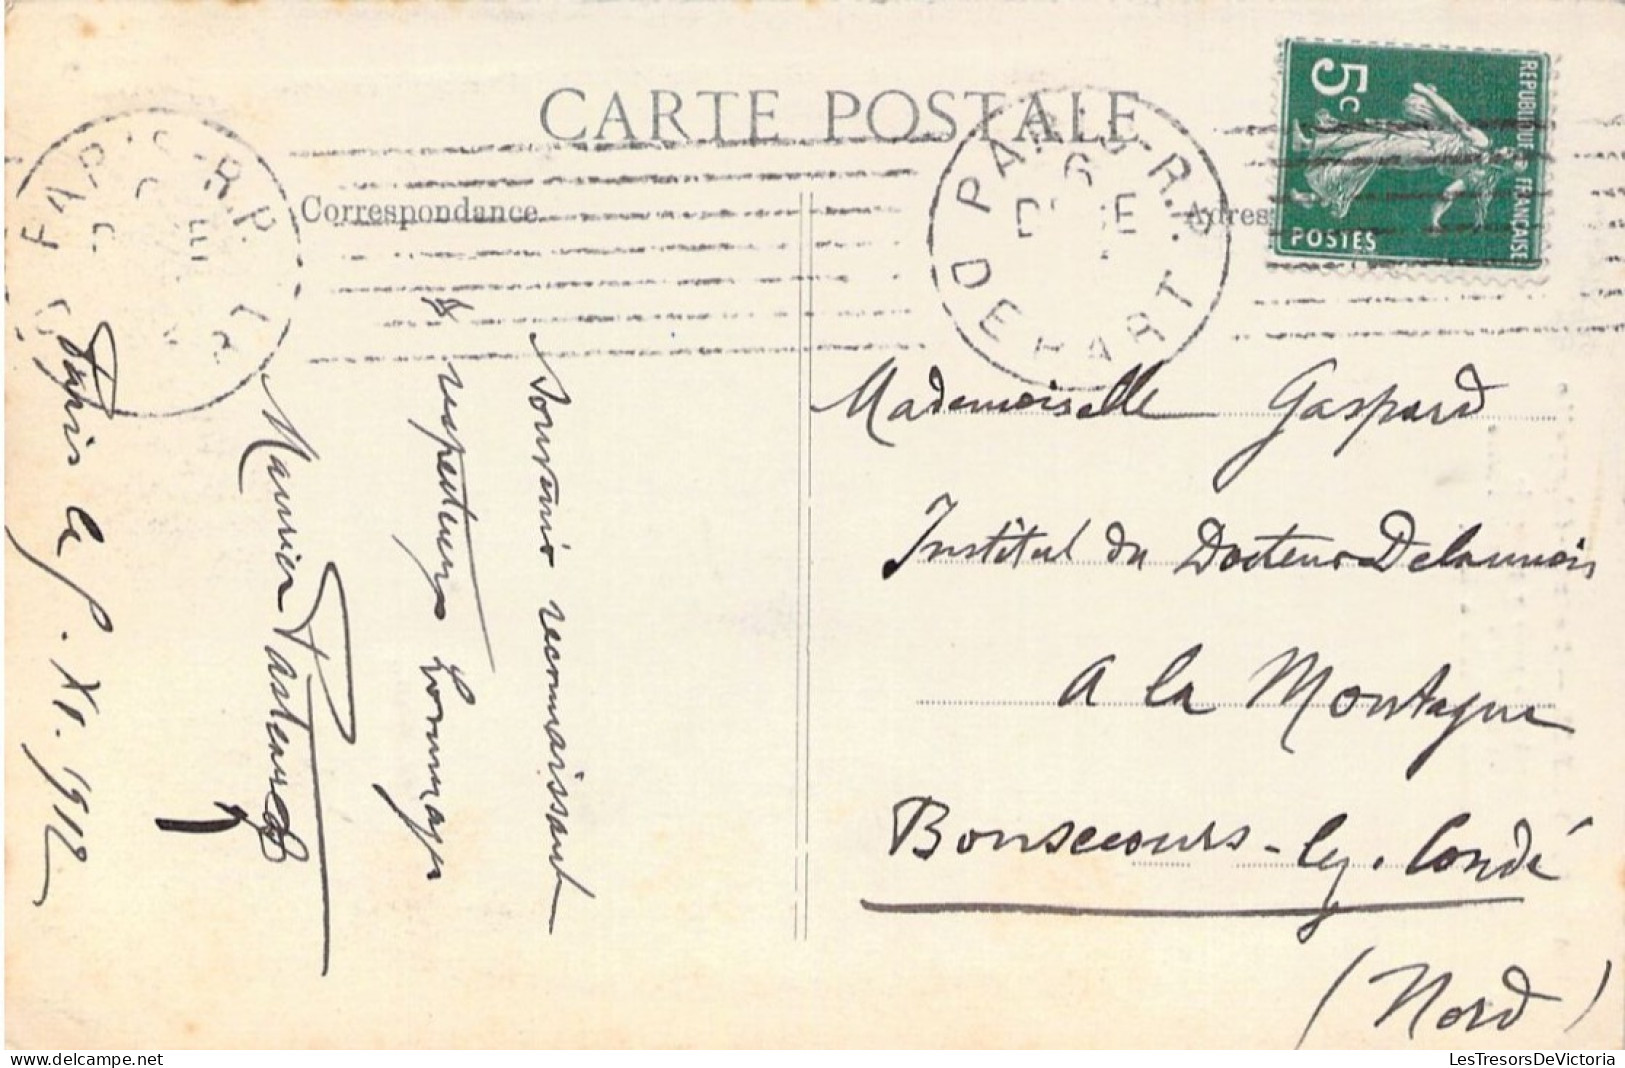 CARTE POSTALE
Correspondance
Adres
5c
REPUBLIQUE FRANÇAISE
POSTES
PARIS R.P.
DEPART
PARIS R.P.
Souvenir reconnaissant
& respectueux hommage
Maurice Pasteur
Paris le
XI. 1912
Mademoiselle Gaspard
Institut du Docteur Delaunois
A la Montagne
Bonsecours-lez-Condé
(Nord)
LesTresorsDeVictoria